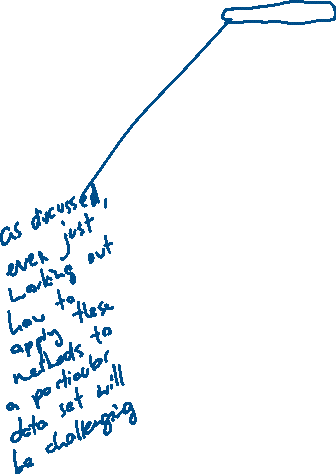 as discussed,
even just
working out
how to
apply these
methods to
a particular
data set will
be challenging